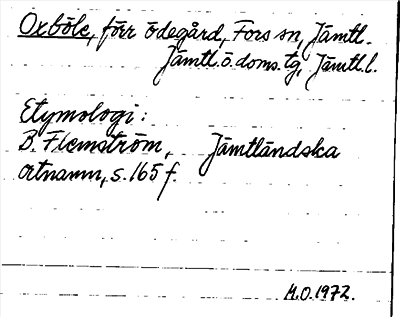 Oxböle, förr ödegård, Fors sn, Jämtl.
Jämtl. ö. doms. tg, Jämtl. l.
Etymologi:
B. Flemström, Jämtländska
ortnamn, s. 165 f.
M.O. 1972.